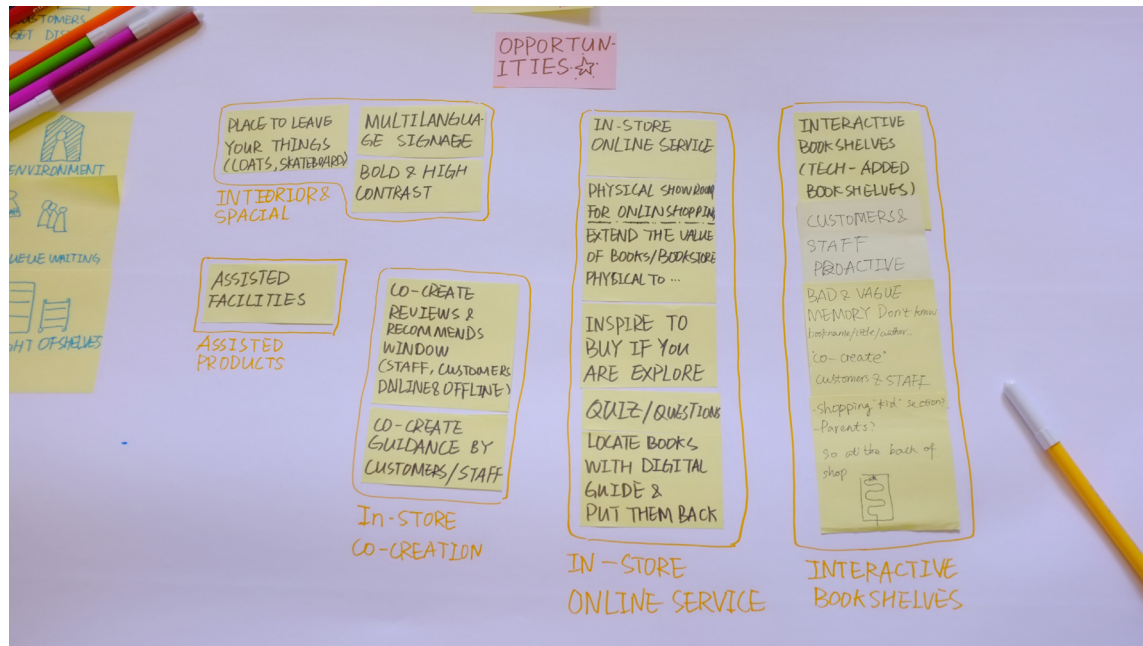 CUSTOMERS
GET
OPPORTUN-
ITIES.
ENVIRONMENT
QUEUE WAITING
HT OF SHELVES
PLACE TO LEAVE
YOUR THINGS
(COATS, SKATEBOARD)
MULTILANGUA-
GE SIGNAGE
BOLD & HIGH
CONTRAST
INTEORIOR &
SPACIAL
ASSISTED
FACILITIES
ASSISTED
PRODUCTS
CO-CREATE
REVIEWS &
RECOMMENDS
WINDOW
(STAFF, CUSTOMERS
ONLINE & OFFLINE)
CO-CREATE
GUIDANCE BY
CUSTOMERS/STAFF
In-STORE
CO-CREATION
IN-STORE
ONLINE SERVICE
PHYSICAL SHOWROOM
FOR ONLINSHOPPING
EXTEND THE VALUE
OF BOOKS/BOOKSTORE
PHYSICAL TO ...
INSPIRE TO
BUY IF YOU
ARE EXPLORE
QUIZ/QUESTIONS
LOCATE BOOKS
WITH DIGITAL
GUIDE &
PUT THEM BACK
IN-STORE
ONLINE SERVICE
INTERACTIVE
BOOKSHELVES
(TECH-ADDED
BOOKSHELVES)
CUSTOMERS &
STAFF
PROACTIVE
BAD & VAGUE
MEMORY Don't know
bookname/title/author..
"co-create"
customers & STAFF
-shopping "kid" section?
-Parents?
so at the back of
shop
INTERACTIVE
BOOKSHELVES